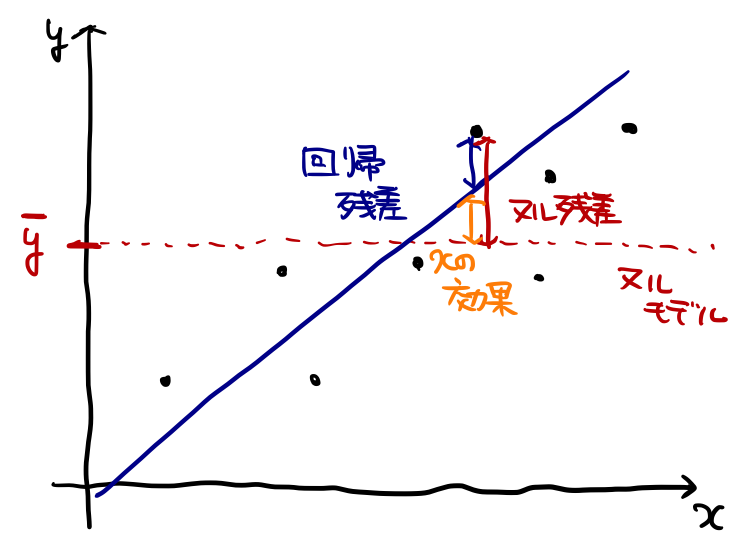 y
回帰
残差
ヌル残差
ȳ
xの
効果
ヌル
モデル
x